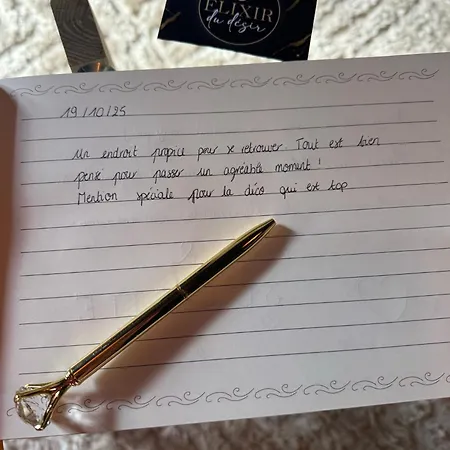 ELIXIR
du désir
19/10/25
Un endroit propice pour se retrouver. Tout est bien
pensé pour passer un agréable moment !
Mention spéciale pour la déco qui est top.